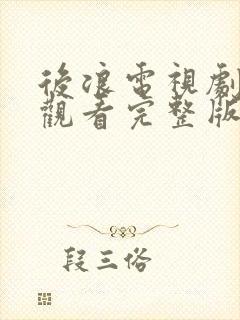 後浪電視劇
觀看完整版
段三俗